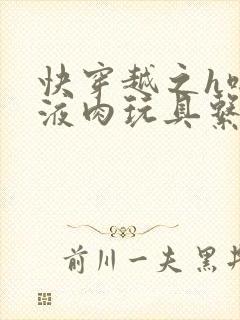 快穿越之h
液肉玩具系
前川一夫 黑